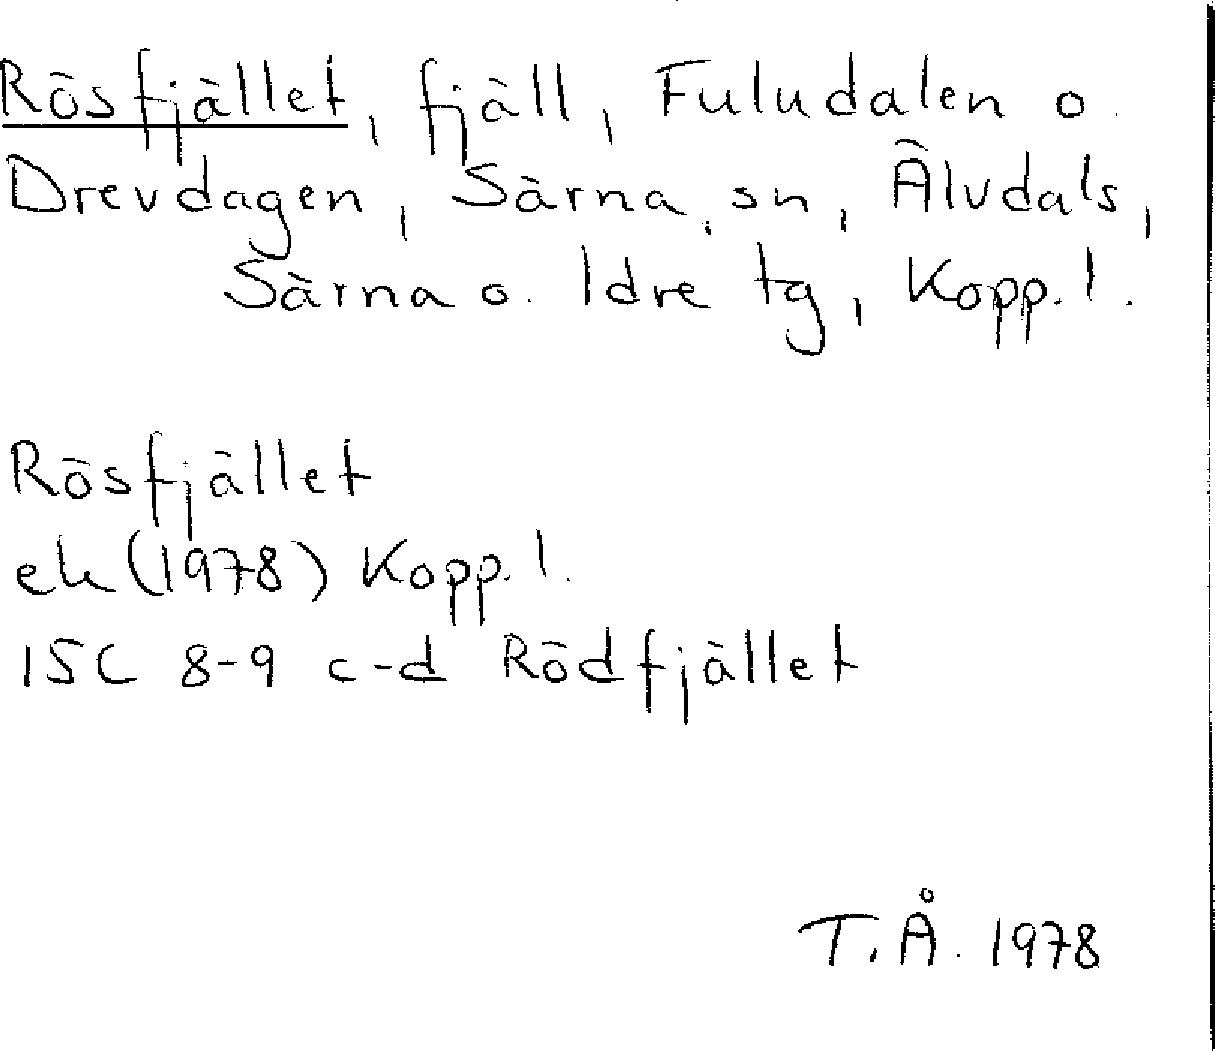 Rösfjället, fjäll, Fuludalen o.
Drevdagen, Särna sn, Älvdals,
Särna o. Idre tg, Kopp. l.
Rösfjället
ek (1978) Kopp. l.
15C 8-9 c-d Rödfjället
T.Å. 1978